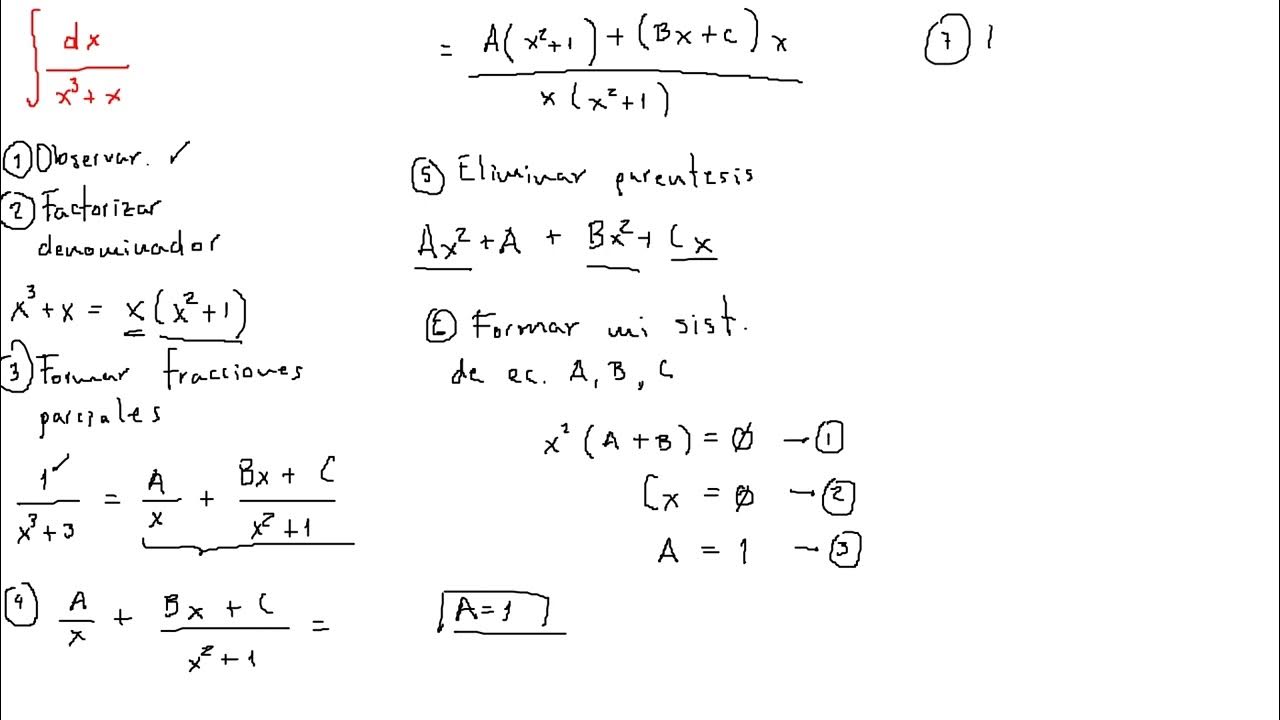 ∫ dx / x³ + x
① Observar. ✓
② Factorizar
denominador
x³ + x = x (x² + 1)
③ Formar fracciones
parciales
1 ✓ / x³ + 3 = A / x + Bx + C / x² + 1
④ A / x + Bx + C / x² + 1 =
= A(x² + 1) + (Bx + C) x / x (x² + 1)
⑤ Eliminar parentesis
Ax² + A + Bx² + Cx
⑥ Formar mi sist.
de ec. A, B, C
x² (A + B) = 0 → ①
Cx = 0 → ②
A = 1 → ③
A = 1
⑦